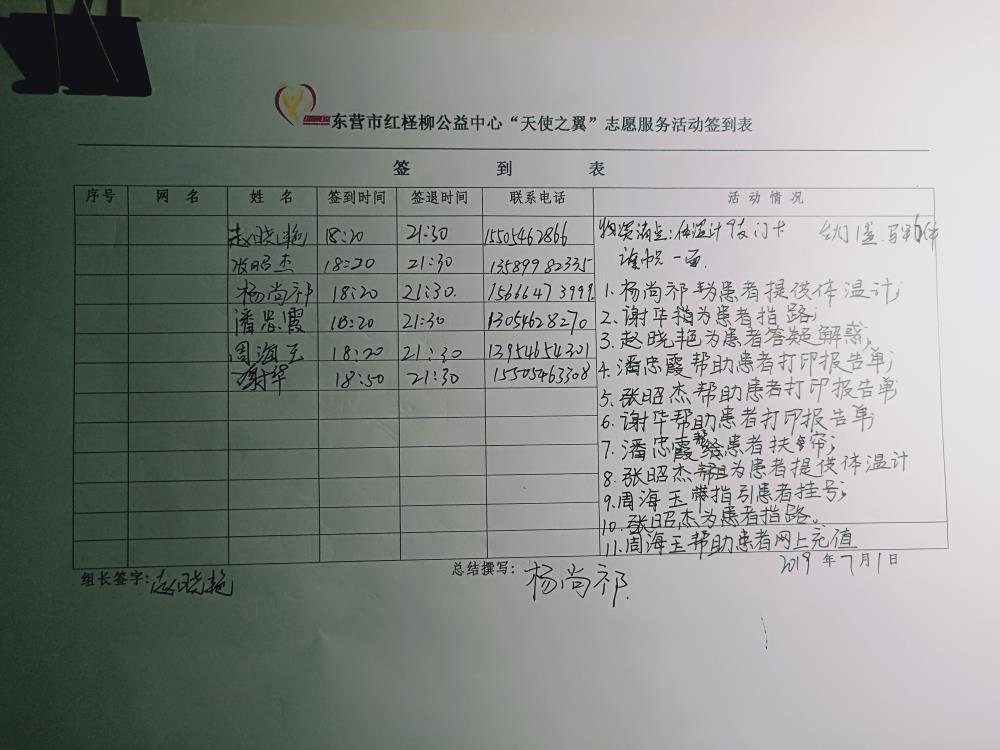 东营市红柽柳公益中心“天使之翼”志愿服务活动签到表
签 到 表
序号 网 名 姓 名 签到时间 签退时间 联系电话 活 动 情 况
赵晓艳 18:20 21:30 15505462866
张昭杰 18:20 21:30 13589982335
杨尚祁 18:20 21:30. 15666473999
潘忠霞 18:20 21:30 13054628270
周海玉 18:20 21:30 13954654301
谢华 18:50 21:30 15505463308
物资清点:体温计 门卡
一面.
1.杨尚祁为患者提供体温计;
2.谢华为患者指路;
3.赵晓艳为患者答疑解惑;
4.潘忠霞帮助患者打印报告单;
5.张昭杰帮助患者打印报告单
6.谢华帮助患者打印报告单
7.潘忠霞给患者扶帘;
8.张昭杰为患者提供体温计
9.周海玉指引患者挂号;
10.张昭杰为患者指路。
11.周海玉帮助患者网上充值
组长签字:赵晓艳 总结撰写:杨尚祁. 2019年7月1日